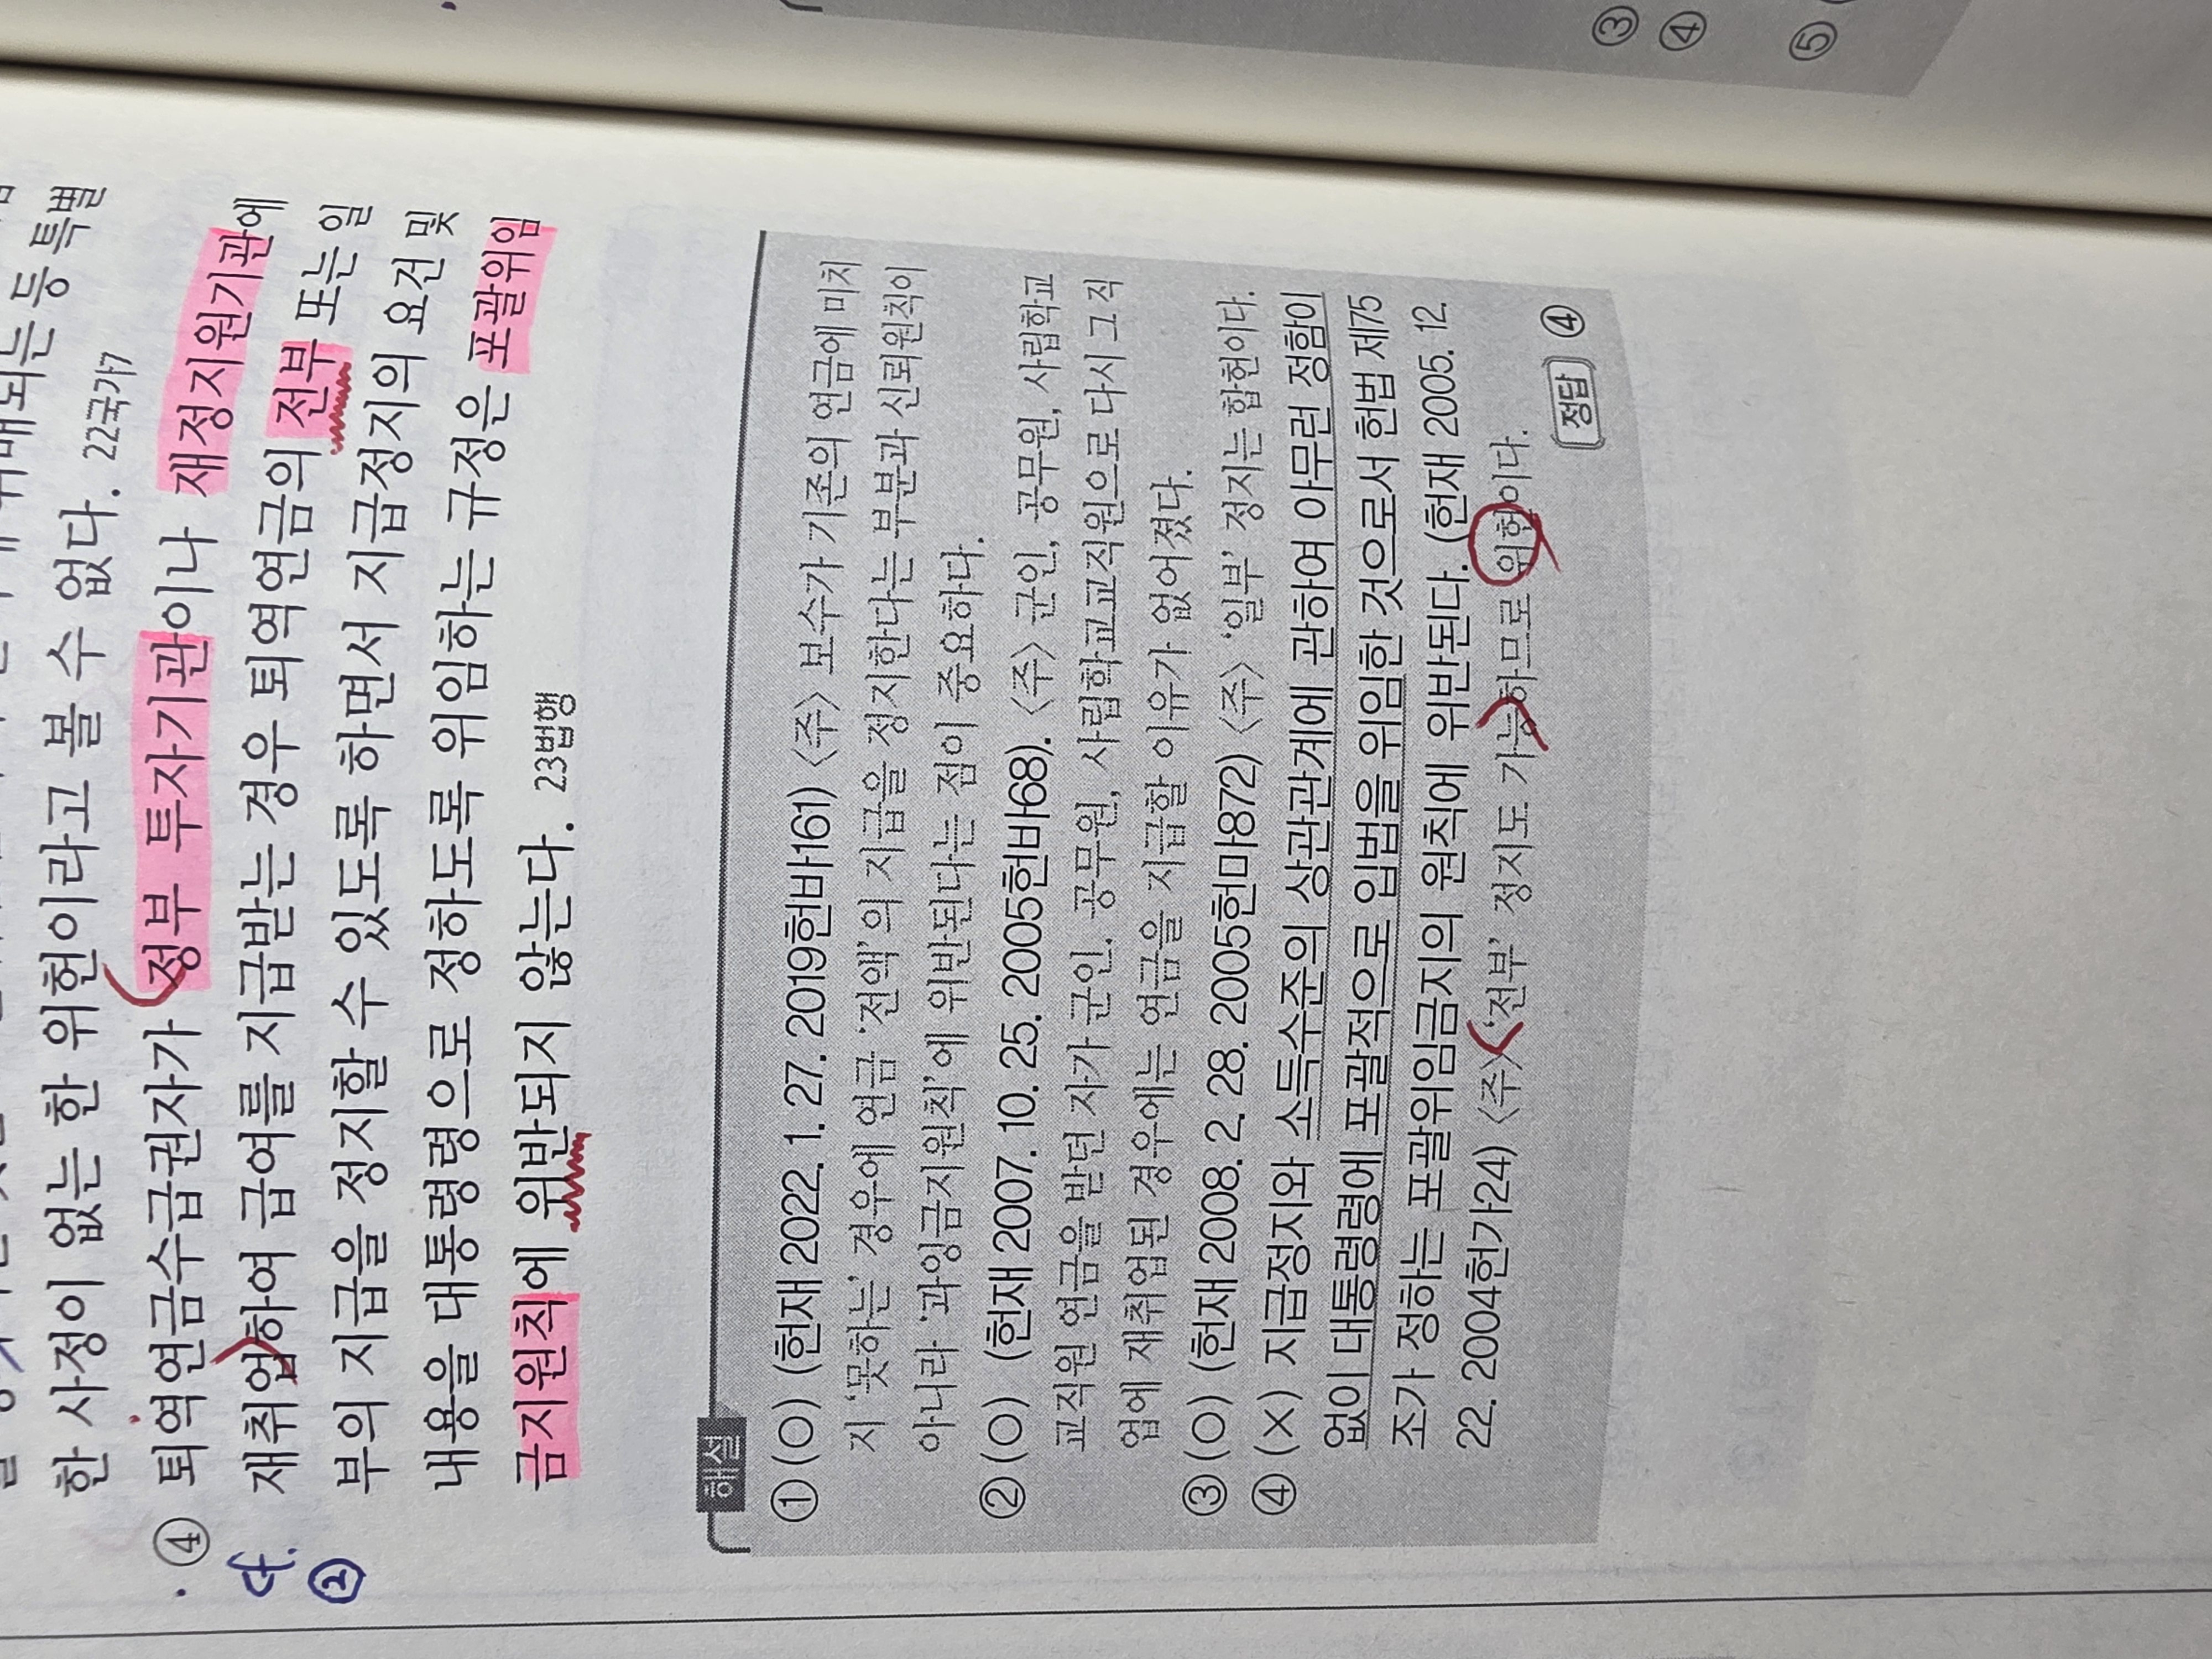 한 사정이 없는 한 위헌이라고 볼 수 없다. 22국가7
④ 퇴역연금수급권자가 정부 투자기관이나 재정지원기관에
재취업하여 급여를 지급받는 경우 퇴역연금의 전부 또는 일
부의 지급을 정지할 수 있도록 하면서 지급정지의 요건 및
내용을 대통령령으로 정하도록 위임하는 규정은 포괄위임
금지원칙에 위반되지 않는다. 23법행
cf.
②
해설
① (O) (헌재 2022. 1. 27. 2019헌바161) <주> 보수가 기존의 연금에 미치
지 ‘못하는’ 경우에 연금 ‘전액’의 지급을 정지한다는 부분과 신뢰원칙이
아니라 ‘과잉금지원칙’에 위반된다는 점이 중요하다.
② (O) (헌재 2007. 10. 25. 2005헌바68). <주> 군인, 공무원, 사립학교
교직원 연금을 받던 자가 군인, 공무원, 사립학교교직원으로 다시 그 직
업에 재취업된 경우에는 연금을 지급할 이유가 없어졌다.
③ (O) (헌재 2008. 2. 28. 2005헌마872) <주> ‘일부’ 정지는 합헌이다.
④ (X) 지급정지와 소득수준의 상관관계에 관하여 아무런 정함이
없이 대통령령에 포괄적으로 입법을 위임한 것으로서 헌법 제75
조가 정하는 포괄위임금지의 원칙에 위반된다. (헌재 2005. 12.
22. 2004헌가24) <주> ‘전부’ 정지도 가능하므로 위헌이다.
정답 ④
③
④
⑤